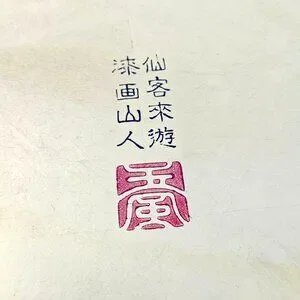 仙客來遊
漆画山人